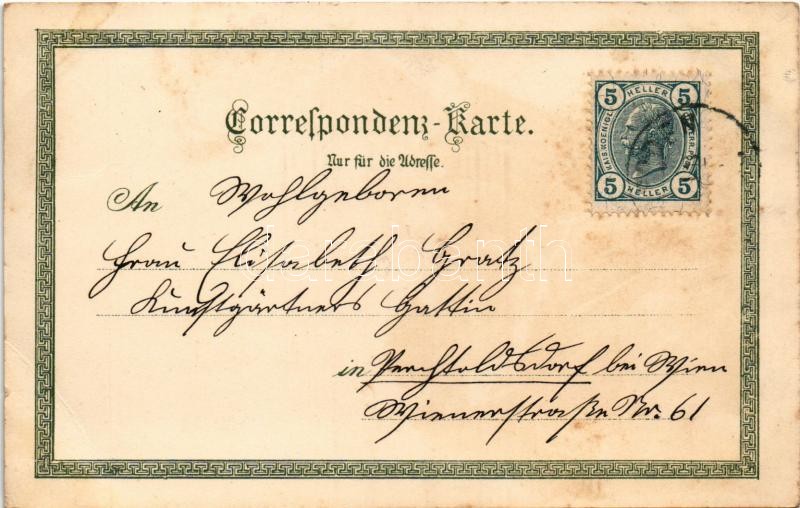 Correspondenz-Karte.
Nur für die Adresse.
5 HELLER 5
KAIS. KOENIGL.
5 HELLER 5
An Wohlgeboren
Frau Elisabeth Gratz
Kunstgärtners Gattin
in Perchtoldsdorf bei Wien
Wienerstraße Nr. 61
darabanth